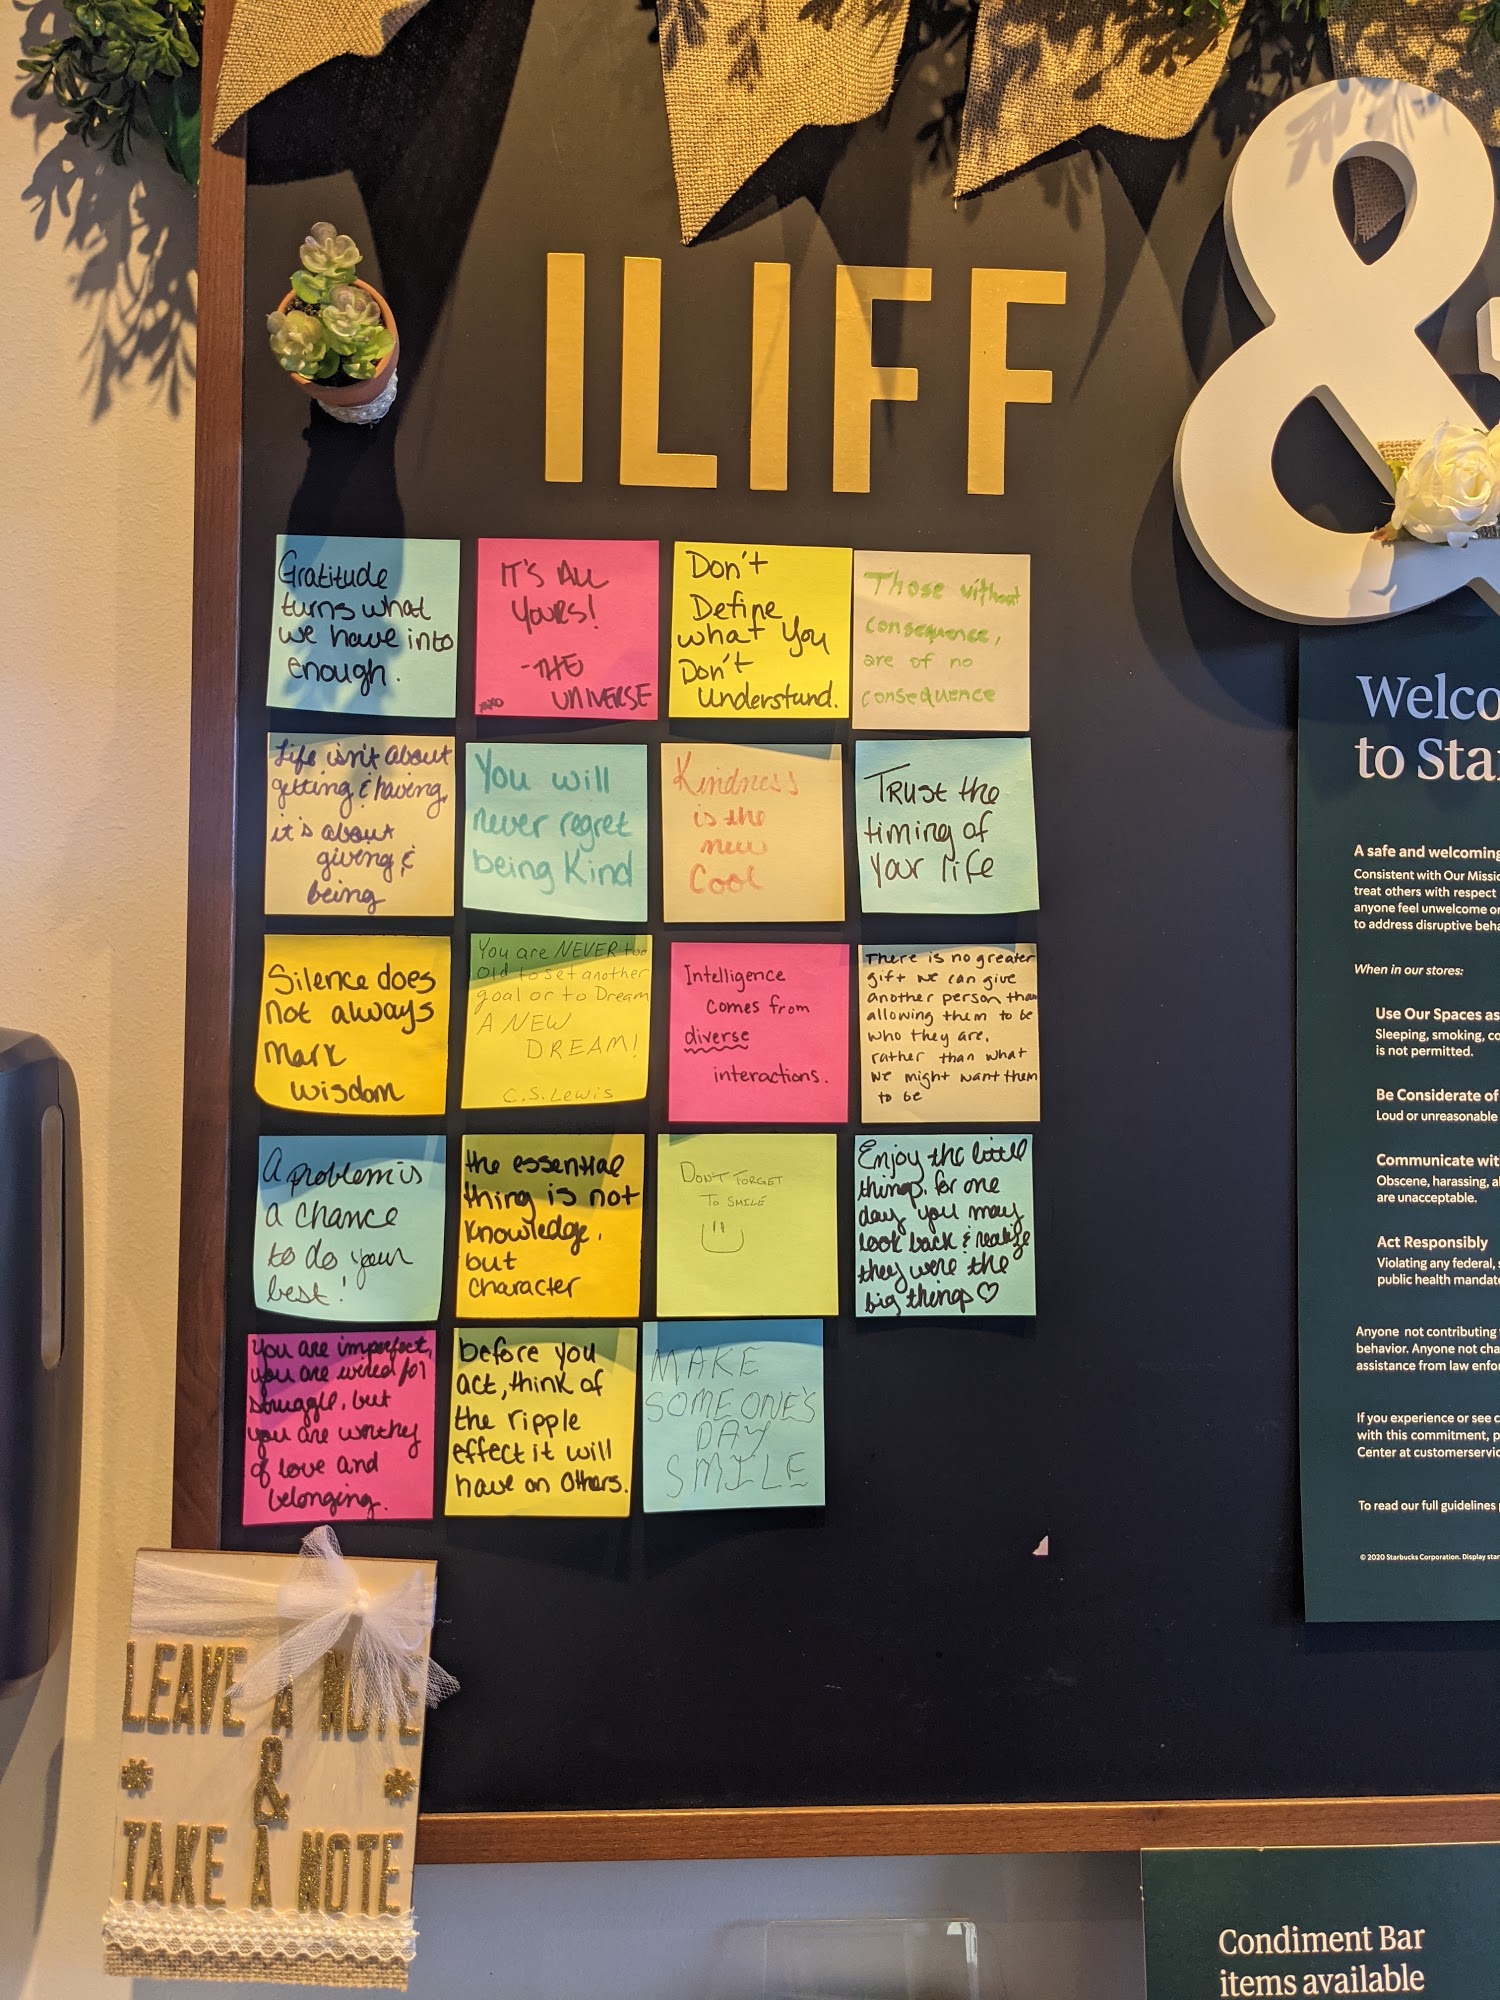 ILIFF
&
Gratitude
turns what
we have into
enough.
IT'S ALL
YOURS!
-THE
xoxo UNIVERSE
Don't
Define
what you
Don't
Understand.
Those without
consequence,
are of no
consequence
Life isn't about
getting & having,
it's about
giving &
being
You will
never regret
being Kind
Kindness
is the
new
Cool
Trust the
timing of
Your life
Silence does
not always
Mark
wisdom
You are NEVER too
old to set another
goal or to Dream
A NEW
DREAM!
C.S. Lewis
Intelligence
comes from
diverse
interactions.
There is no greater
gift we can give
another person than
allowing them to be
who they are,
rather than what
we might want them
to be
A problem is
a chance
to do your
best!
the essential
thing is not
knowledge,
but
character
DON'T FORGET
TO SMILE
Enjoy the little
things, for one
day you may
look back & realize
they were the
big things
You are imperfect,
you are wired for
struggle, but
you are worthy
of love and
belonging.
before you
act, think of
the ripple
effect it will
have on others.
MAKE
SOMEONE'S
DAY
SMILE
LEAVE A NOTE
&
TAKE A NOTE
Welco
to Sta
A safe and welcoming
Consistent with Our Missio
treat others with respect
anyone feel unwelcome or
to address disruptive beha
When in our stores:
Use Our Spaces as
Sleeping, smoking, co
is not permitted.
Be Considerate of
Loud or unreasonable
Communicate wit
Obscene, harassing, a
are unacceptable.
Act Responsibly
Violating any federal, s
public health mandate
Anyone not contributing
behavior. Anyone not cha
assistance from law enfo
If you experience or see c
with this commitment, p
Center at customerservic
To read our full guidelines
© 2020 Starbucks Corporation. Display star
Condiment Bar
items available